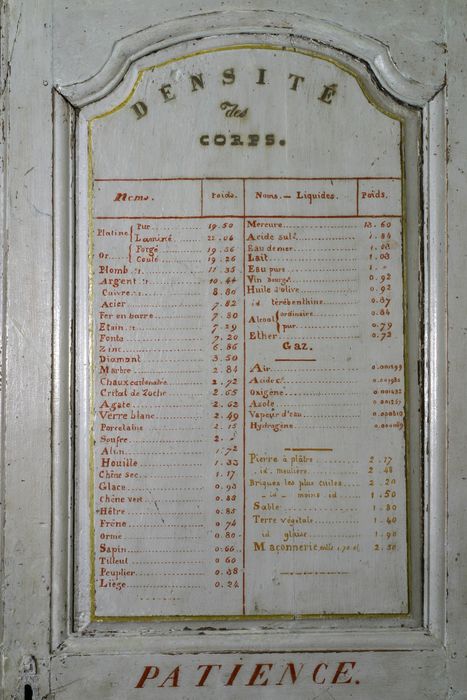 DENSITÉ
des
CORPS.
Noms. Poids.
Platine Pur 19.50
Laminé 22.06
Or Forgé 19.36
Coulé 19.26
Plomb 11.35
Argent 10.44
Cuivre 8.80
Acier 7.82
Fer en barre 7.80
Etain 7.29
Fonte 7.20
Zinc 6.86
Diamant 3.50
Marbre 2.84
Chaux 2.72
Cristal de Roche 2.65
Agate 2.62
Verre blanc 2.49
Porcelaine 2.15
Soufre 2.
Alun 1.72
Houille 1.33
Chêne sec 1.17
Glace 0.93
Chêne vert 0.88
Hêtre 0.85
Frêne 0.74
Orme 0.80
Sapin 0.66
Tilleul 0.60
Peuplier 0.38
Liége 0.24
Noms. — Liquides. Poids.
Mercure 13.60
Acide sulf. 1.84
Eau de mer 1.03
Lait 1.03
Eau pure 1.
Vin 0.92
Huile d'olive 0.92
id térébenthine 0.87
Alcool ordinaire 0.84
pur 0.79
Ether 0.72
Gaz.
Air
Acide
Oxigène
Azote
Vapeur d'eau
Hydrogène
Pierre à plâtre 2.17
id. meulière 2.48
Briques les plus cuites 2.20
id. moins id 1.50
Sable 1.80
Terre végétale 1.40
id glaise 1.90
Maçonnerie 2.30
PATIENCE.